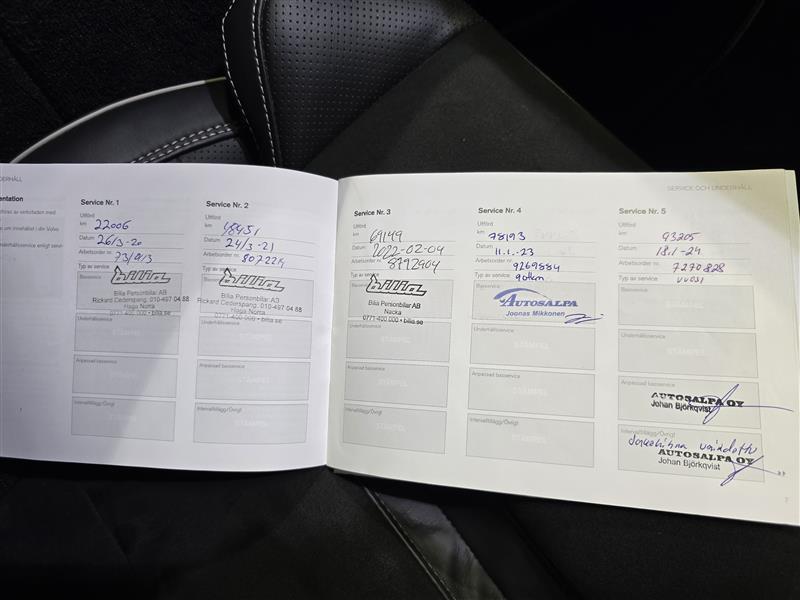 DERHÅLL
entation
Service Nr. 1
Utförd
km 22006
Datum 26/3-20
Arbetsorder nr
Typ av service
Basservice
bilia
Bilia Personbilar AB
Rickard Cederspang, 010-497 04 88
Haga Norra
0771-400 000 • bilia.se
Underhållsservice
STÄMPEL
Anpassad basservice
STÄMPEL
Intervalltillägg/Övrigt
STÄMPEL
Service Nr. 2
Utförd
km 48451
Datum 24/3-21
Arbetsorder nr
Typ av service
bilia
Bilia Personbilar AB
Rickard Cederspang, 010-497 04 88
Haga Norra
0771-400 000 • bilia.se
Underhållsservice
STÄMPEL
Anpassad basservice
STÄMPEL
Intervalltillägg/Övrigt
STÄMPEL
SERVICE OCH UNDERHÅLL
Service Nr. 3
Utförd
km 69149
Datum 2022-02-04
Arbetsorder nr 8792904
Typ av service
bilia
Bilia Personbilar AB
Nacka
0771-400 000 • bilia.se
Underhållsservice
STÄMPEL
Anpassad basservice
STÄMPEL
Intervalltillägg/Övrigt
STÄMPEL
Service Nr. 4
Utförd
km 78193
Datum 11.1.-23
Arbetsorder nr 9269884
Typ av service 90tkm
Basservice
AUTOSALPA
Joonas Mikkonen
Underhållsservice
STÄMPEL
Anpassad basservice
STÄMPEL
Intervalltillägg/Övrigt
STÄMPEL
Service Nr. 5
Utförd
km 93205
Datum 18.1-24
Arbetsorder nr 7270828
Typ av service
Basservice
STÄMPEL
Underhållsservice
STÄMPEL
Anpassad basservice
AUTOSALPA OY
Johan Björkqvist
Intervalltillägg/Övrigt
AUTOSALPA OY
Johan Björkqvist
7